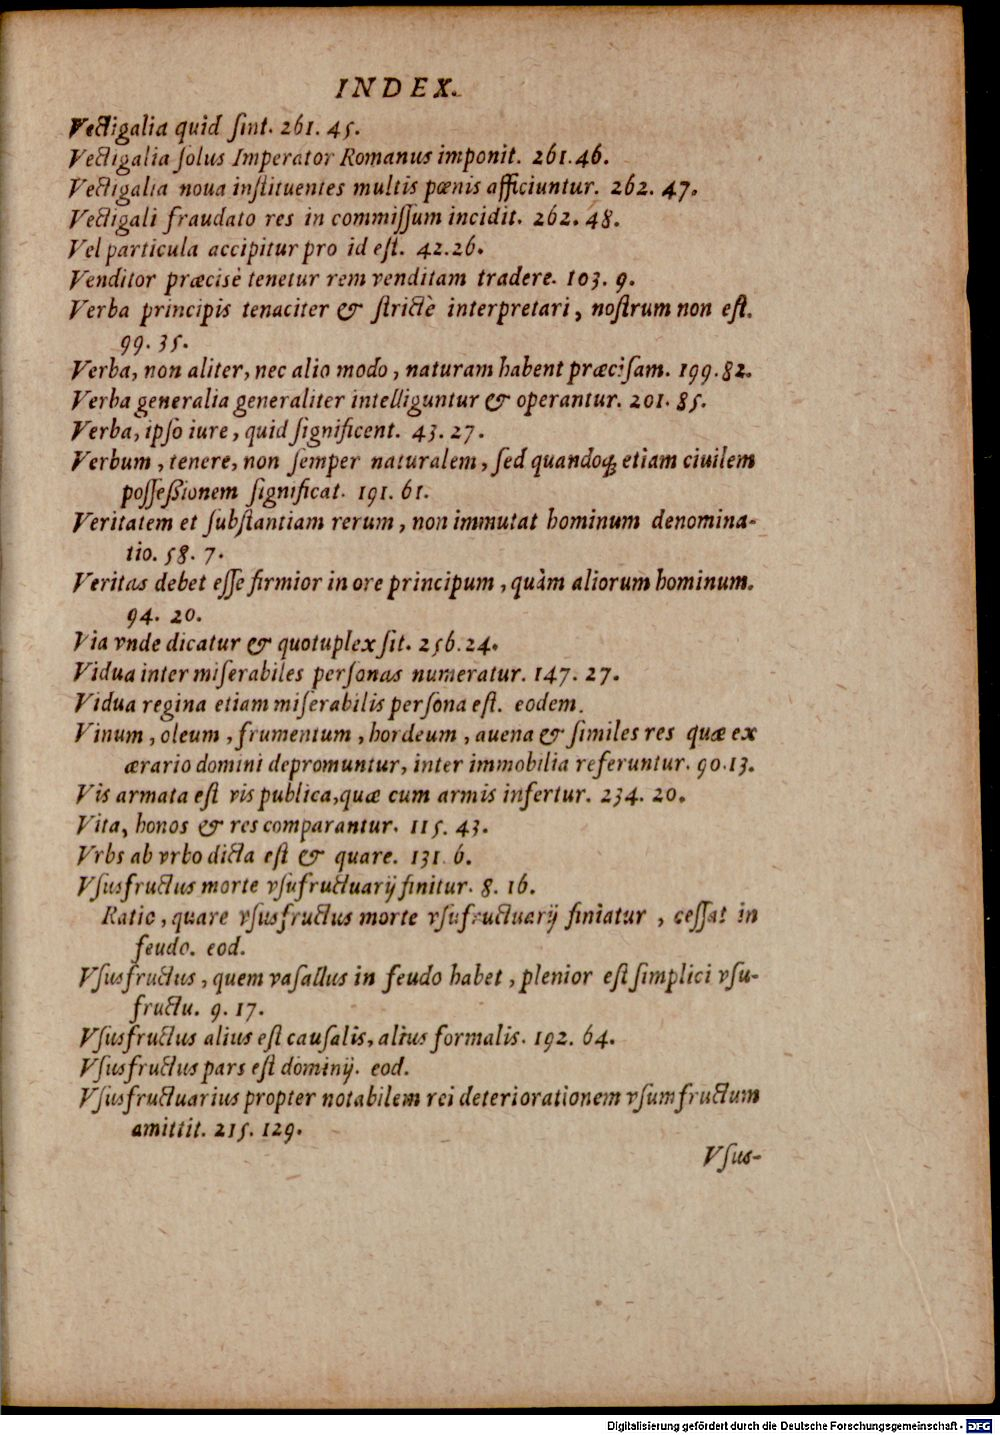 INDEX.
Vectigalia quid ſint. 261. 45.
Vectigalia ſolus Imperator Romanus imponit. 261.46.
Vectigalia noua inſtituentes multis pœnis afficiuntur. 262. 47.
Vectigali fraudato res in commiſſum incidit. 262. 48.
Vel particula accipitur pro id eſt. 42.26.
Venditor præcisè tenetur rem venditam tradere. 103. 9.
Verba principis tenaciter & ſtrictè interpretari, noſtrum non eſt.
99. 35.
Verba, non aliter, nec alio modo, naturam habent præciſam. 199.82.
Verba generalia generaliter intelliguntur & operantur. 201. 85.
Verba, ipſo iure, quid ſignificent. 43. 27.
Verbum, tenere, non ſemper naturalem, ſed quandoq; etiam ciuilem
poſſeßionem ſignificat. 191. 61.
Veritatem et ſubſtantiam rerum, non immutat hominum denomina-
tio. 58. 7.
Veritas debet eſſe firmior in ore principum, quàm aliorum hominum.
94. 20.
Via vnde dicatur & quotuplex ſit. 256.24.
Vidua inter miſerabiles perſonas numeratur. 147. 27.
Vidua regina etiam miſerabilis perſona eſt. eodem.
Vinum, oleum, frumentum, hordeum, auena & ſimiles res quæ ex
ærario domini depromuntur, inter immobilia referuntur. 90.13.
Vis armata eſt vis publica, quæ cum armis infertur. 234. 20.
Vita, honos & res comparantur. 115. 43.
Vrbs ab vrbo dicta eſt & quare. 131. 6.
Vſusfructus morte vſufructuarij finitur. 8. 16.
Ratio, quare vſusfructus morte vſufructuarij finiatur, ceſſat in
feudo. eod.
Vſusfructus, quem vaſallus in feudo habet, plenior eſt ſimplici vſu-
fructu. 9. 17.
Vſusfructus alius eſt cauſalis, alius formalis. 192. 64.
Vſusfructus pars eſt dominij. eod.
Vſusfructuarius propter notabilem rei deteriorationem vſumfructum
amittit. 215. 129.
Vſus-
Digitalisierung gefördert durch die Deutsche Forschungsgemeinschaft - DFG